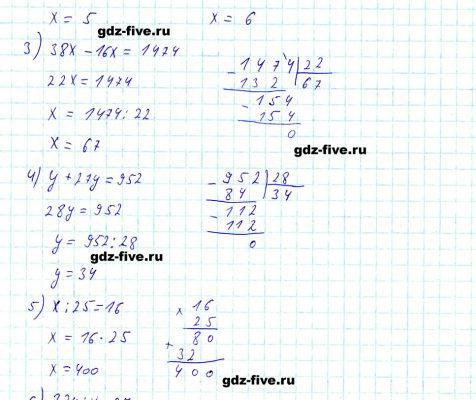 x = 5
x = 6
gdz-five.ru
3) 38x - 16x = 1474
22x = 1474
x = 1474 : 22
x = 67
- 1474 | 22
132 | 67
- 154
154
0
gdz-five.ru
4) y + 27y = 952
28y = 952
y = 952 : 28
gdz-five.ru
y = 34
- 952 | 28
84 | 34
- 112
112
0
5) x : 25 = 16
x = 16 · 25
x = 400
× 16
25
+ 80
32
400
gdz-five.ru